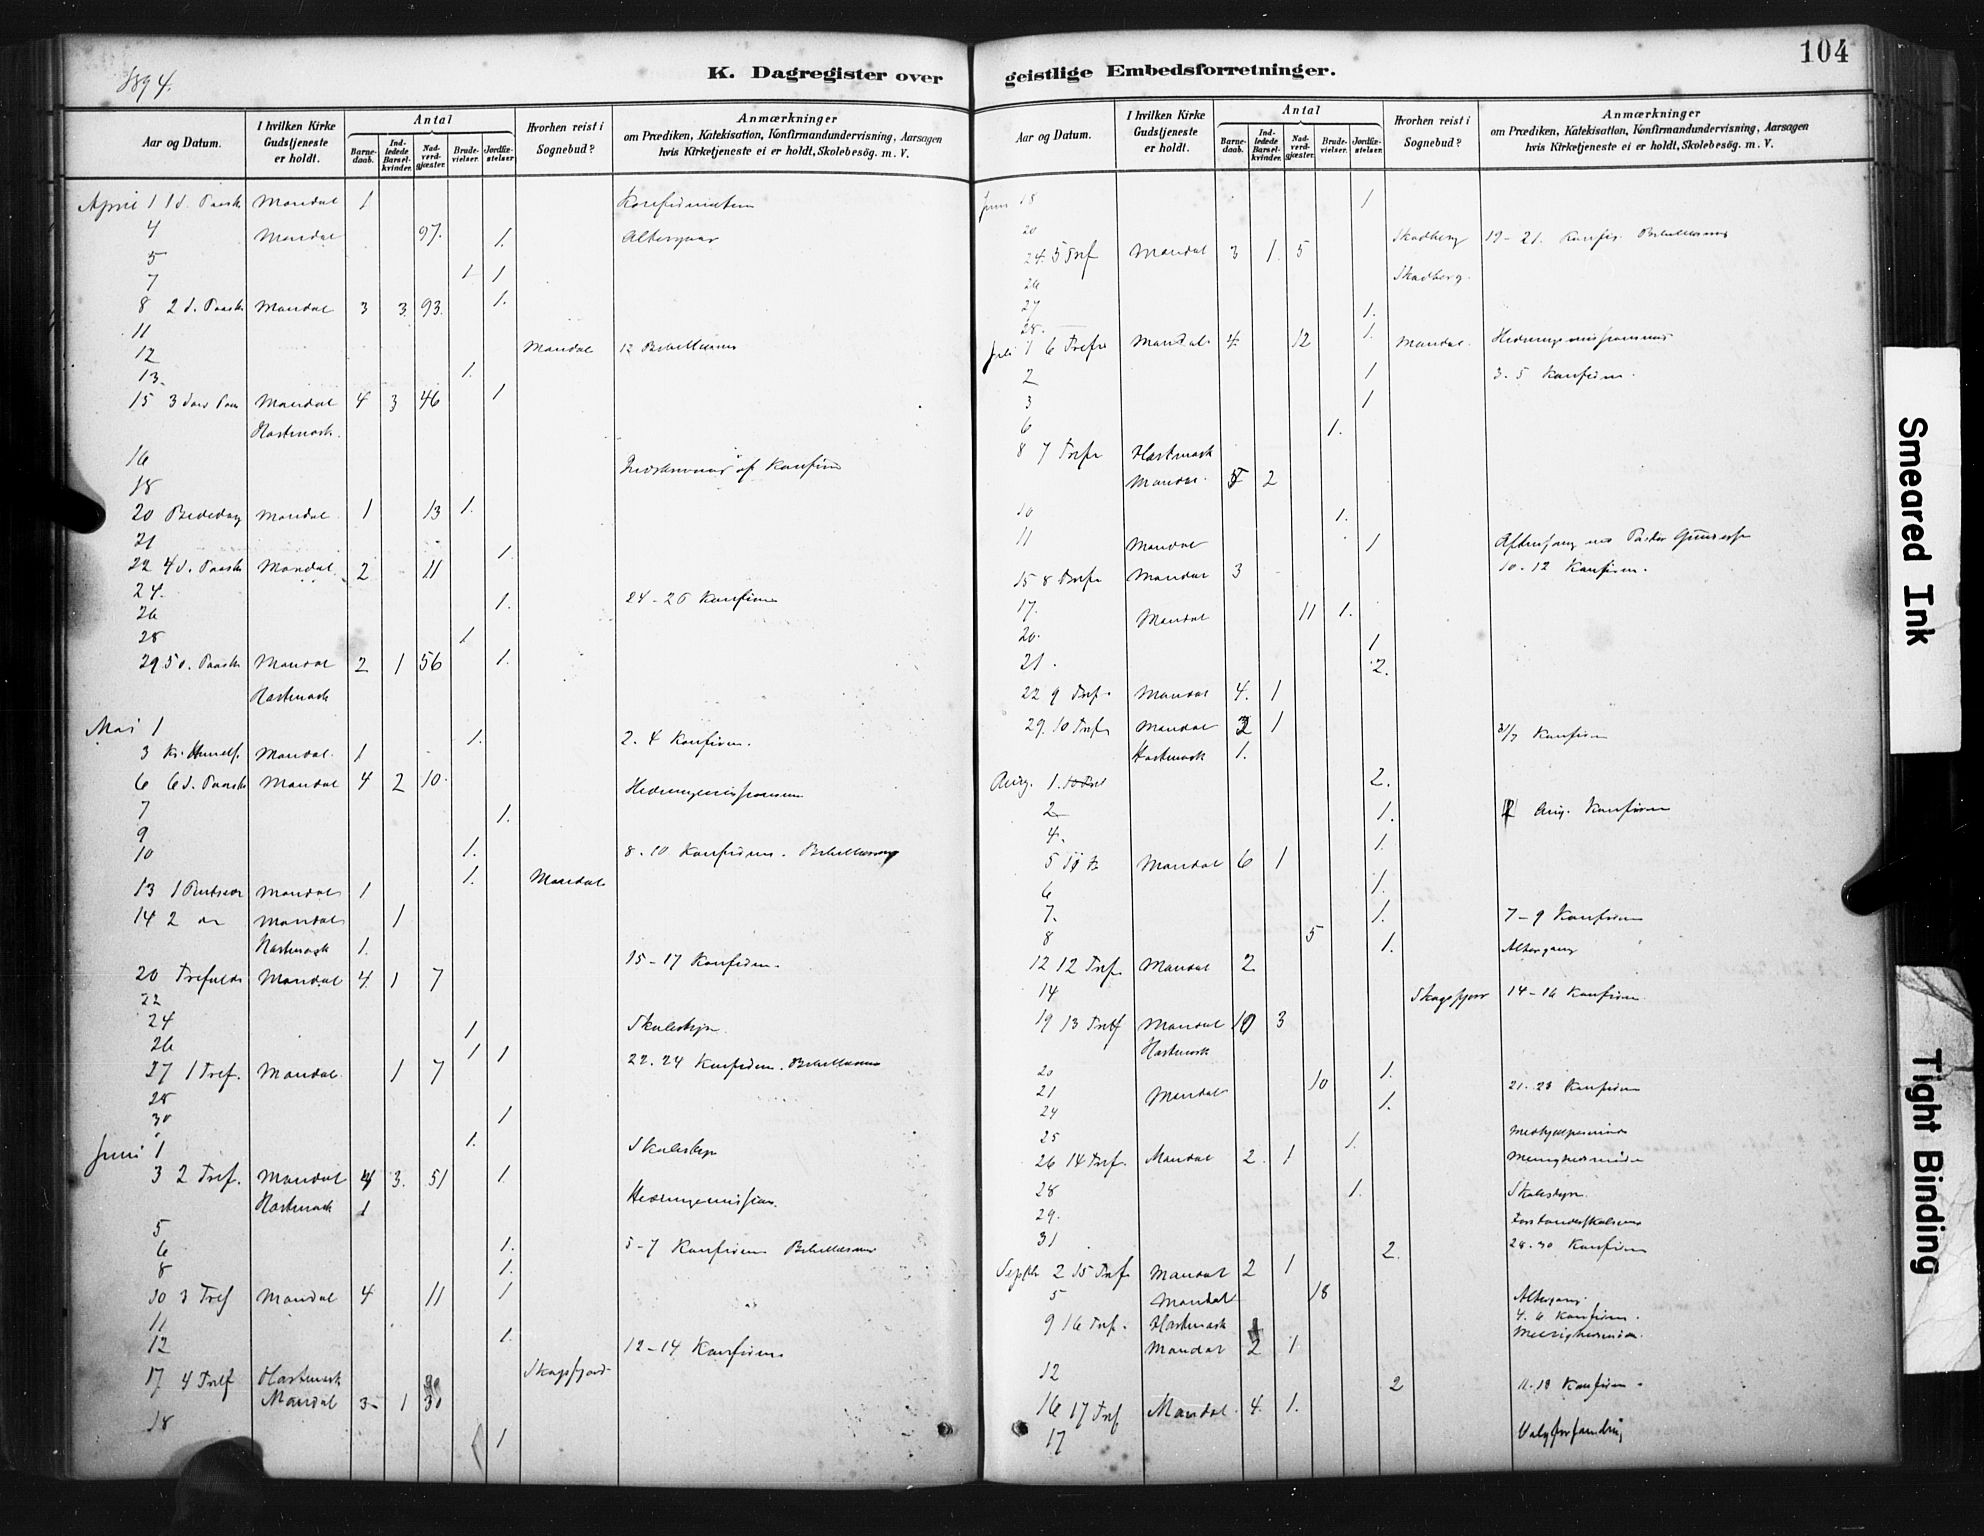 104
1894.
K. Dagregister over geistlige Embedsforretninger.
Aar og Datum. | I hvilken Kirke Gudstjeneste er holdt. | Antal | Barnedaab. | Indledede Barselkvinder. | Nadverdgjæster. | Brudevielser. | Jordfæstelser. | Hvorhen reist i Sognebud? | Anmærkninger om Prædiken, Katekisation, Konfirmandundervisning, Aarsagen hvis Kirketjeneste ei er holdt, Skolebesøg. m. V.
April 1 1 S. Paaske Mandal 1
4 Mandal 97. 1.
5
7 1 1
8 2 S. Paaske Mandal 3 3 93. 1.
11
12 Mandal 12
13. 1.
15 3 Paa Mandal 4 3 46 1
Hartmark.
16 af Konfirm
18
20 Bededag Mandal 1 13 1.
21
22 4 S. Paaske Mandal 2 11 1.
24.
26 1. 24-26 Konfirm
28 1
29 5 S. Paaske Mandal 2 1 56 1.
Hartmark
Mai 1
3 Kr. Himmelf. Mandal. 1 1. 2. 4 Konfirm.
6 6 S. Paaske Mandal 4 2 10.
7 1.
9
10 1. 8. 10 Konfirm. Bibellæsning
13 1 Pintsedag Mandal 1 1. Mandal
14 2 Mandal 1
Hartmark 1. 15-17 Konfirm.
20 Trefoldh Mandal 4 1 7
22
24 1 Skolestyr.
26 1 1
27 1 Tref. Mandal. 1 7 22. 24 Konfirm.
28
30 1
Juni 1 1. Skolestyr
3 2 Tref. Mandal 4 3. 51 1.
Hartmark 1
5
6 1. 5-7 Konfirm
8 1.
10 3 Tref Mandal 4 11 1
11
12 1. 12-14 Konfirm.
17 4 Tref Hartmark Skogsfjord
Mandal 3 1 30
18 1
Aar og Datum. | I hvilken Kirke Gudstjeneste er holdt. | Antal | Barnedaab. | Indledede Barselkvinder. | Nadverdgjæster. | Brudevielser. | Jordfæstelser. | Hvorhen reist i Sognebud? | Anmærkninger om Prædiken, Katekisation, Konfirmandundervisning, Aarsagen hvis Kirketjeneste ei er holdt, Skolebesøg. m. V.
Juni 18 1
20 Skadberg 19-21. Konfir.
24. 5 Tref Mandal 3 1. 5
26 Skadberg.
27 1.
28. 1.
Juli 1 6 Tref Mandal 4. 12 Mandal.
2 1 3. 5 Konfirm.
3 1
6 1.
8 7 Tref Hartmark
Mandal. 5 2
10 1.
11 Mandal 1
15 8 Tref Mandal 3 10. 12 Konfirm.
17. Mandal 11 1.
20. 1
21. 2.
22 9 Tref. Mandal 4. 1
29. 10 Tref Mandal 2 1 31/7 Konfirm
Hartmark 1.
Aug. 1. 2.
2 1. Aug. Konfirm
4. 1.
5 Mandal 6 1
6 1.
7. 1. 7-9 Konfirm
8 5 1. Altergang
12 12 Tref. Mandal 2.
14 Skogsfjor 14-16 Konfirm
19 13 Tref Mandal 10 3
Hartmark
20 1.
21 Mandal 10 21. 23 Konfirm
24 1.
25 1.
26 14 Tref. Mandal 2. 1
28 1. Skolestyr.
29.
31 2. 28. 30 Konfirm
Septbr 2 15 Tref Mandal 2 1
5 Mandal 18 Altergang.
9 16 Tref. Hartmark 4. 6 Konfirm.
Mandal 2 1
12 2 11. 13 Konfirm.
16 17 Tref Mandal. 4. 1.
17
Smeared Ink
Tight Binding